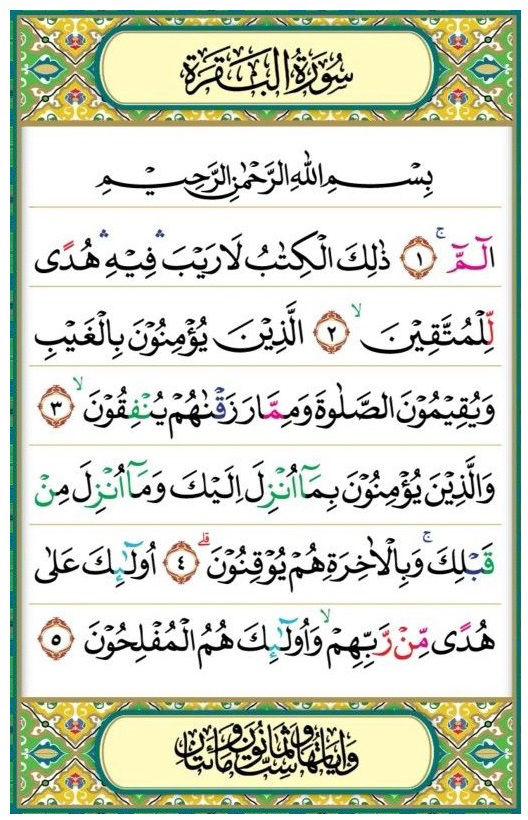 سُوْرَةُ الْبَقَرَة
بِسْمِ اللّٰهِ الرَّحْمٰنِ الرَّحِيْمِ
الٓـمّٓ ۚ ﴿١﴾ ذٰلِكَ الْكِتٰبُ لَارَيْبَ ۛ فِيْهِ ۛ هُدًى
لِّلْمُتَّقِيْنَ ۙ ﴿٢﴾ الَّذِيْنَ يُؤْمِنُوْنَ بِالْغَيْبِ
وَيُقِيْمُوْنَ الصَّلٰوةَ وَمِمَّا رَزَقْنٰهُمْ يُنْفِقُوْنَ ۙ ﴿٣﴾
وَالَّذِيْنَ يُؤْمِنُوْنَ بِمَآ اُنْزِلَ اِلَيْكَ وَمَآ اُنْزِلَ مِنْ
قَبْلِكَ ۚ وَبِالْاٰخِرَةِ هُمْ يُوْقِنُوْنَ ۗ ﴿٤﴾ اُولٰٓئِكَ عَلٰى
هُدًى مِّنْ رَّبِّهِمْ ۙ وَاُولٰٓئِكَ هُمُ الْمُفْلِحُوْنَ ﴿٥﴾
وَاٰيَاتُهَا سِتٌّ وَثَمَانُوْنَ وَمِائَتَانِ